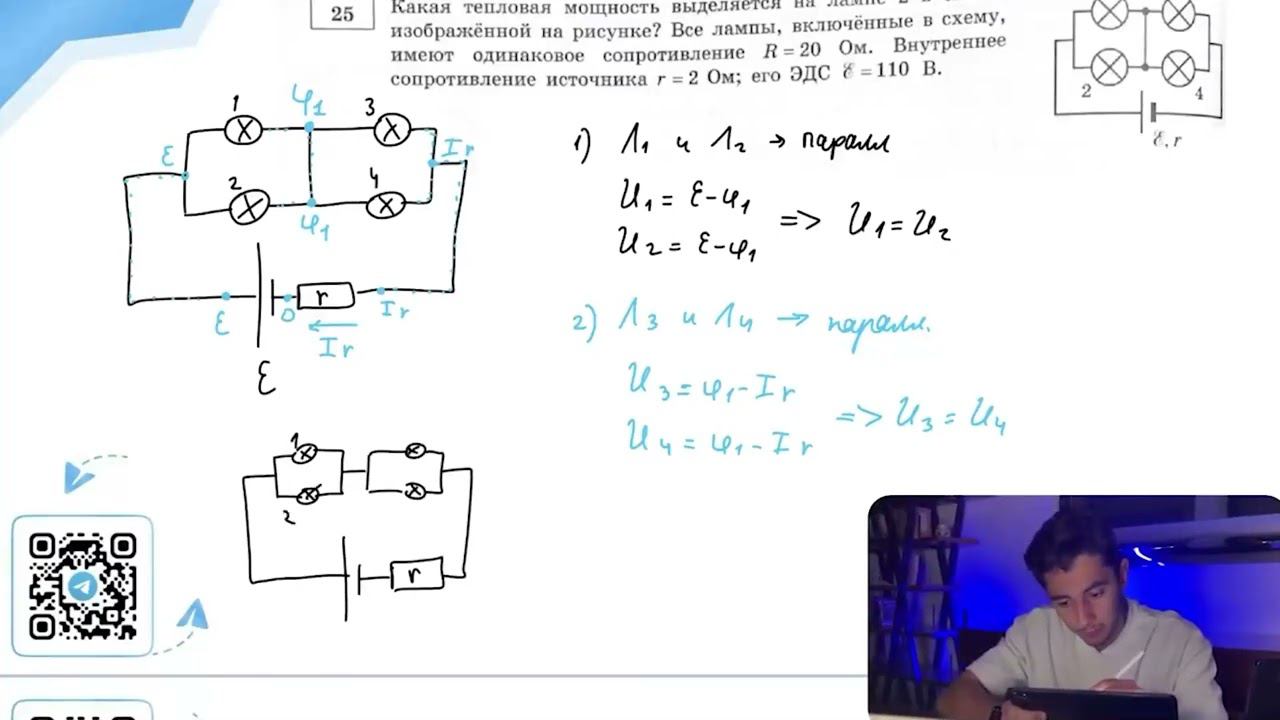 25
Какая тепловая мощность выделяется на лампе 2 в
изображённой на рисунке? Все лампы, включённые в схему,
имеют одинаковое сопротивление R = 20 Ом. Внутреннее
сопротивление источника r = 2 Ом; его ЭДС ℰ = 110 В.
2
4
ℰ, r
1
φ1
3
ℰ
Ir
2
4
φ1
ℰ
0
r
Ir
Ir
ℰ
1) Л1 и Л2 → паралл
U1 = ℰ-φ1
U2 = ℰ-φ1
=> U1 = U2
2) Л3 и Л4 → паралл.
U3 = φ1-Ir
U4 = φ1-Ir
=> U3 = U4
1
2
r